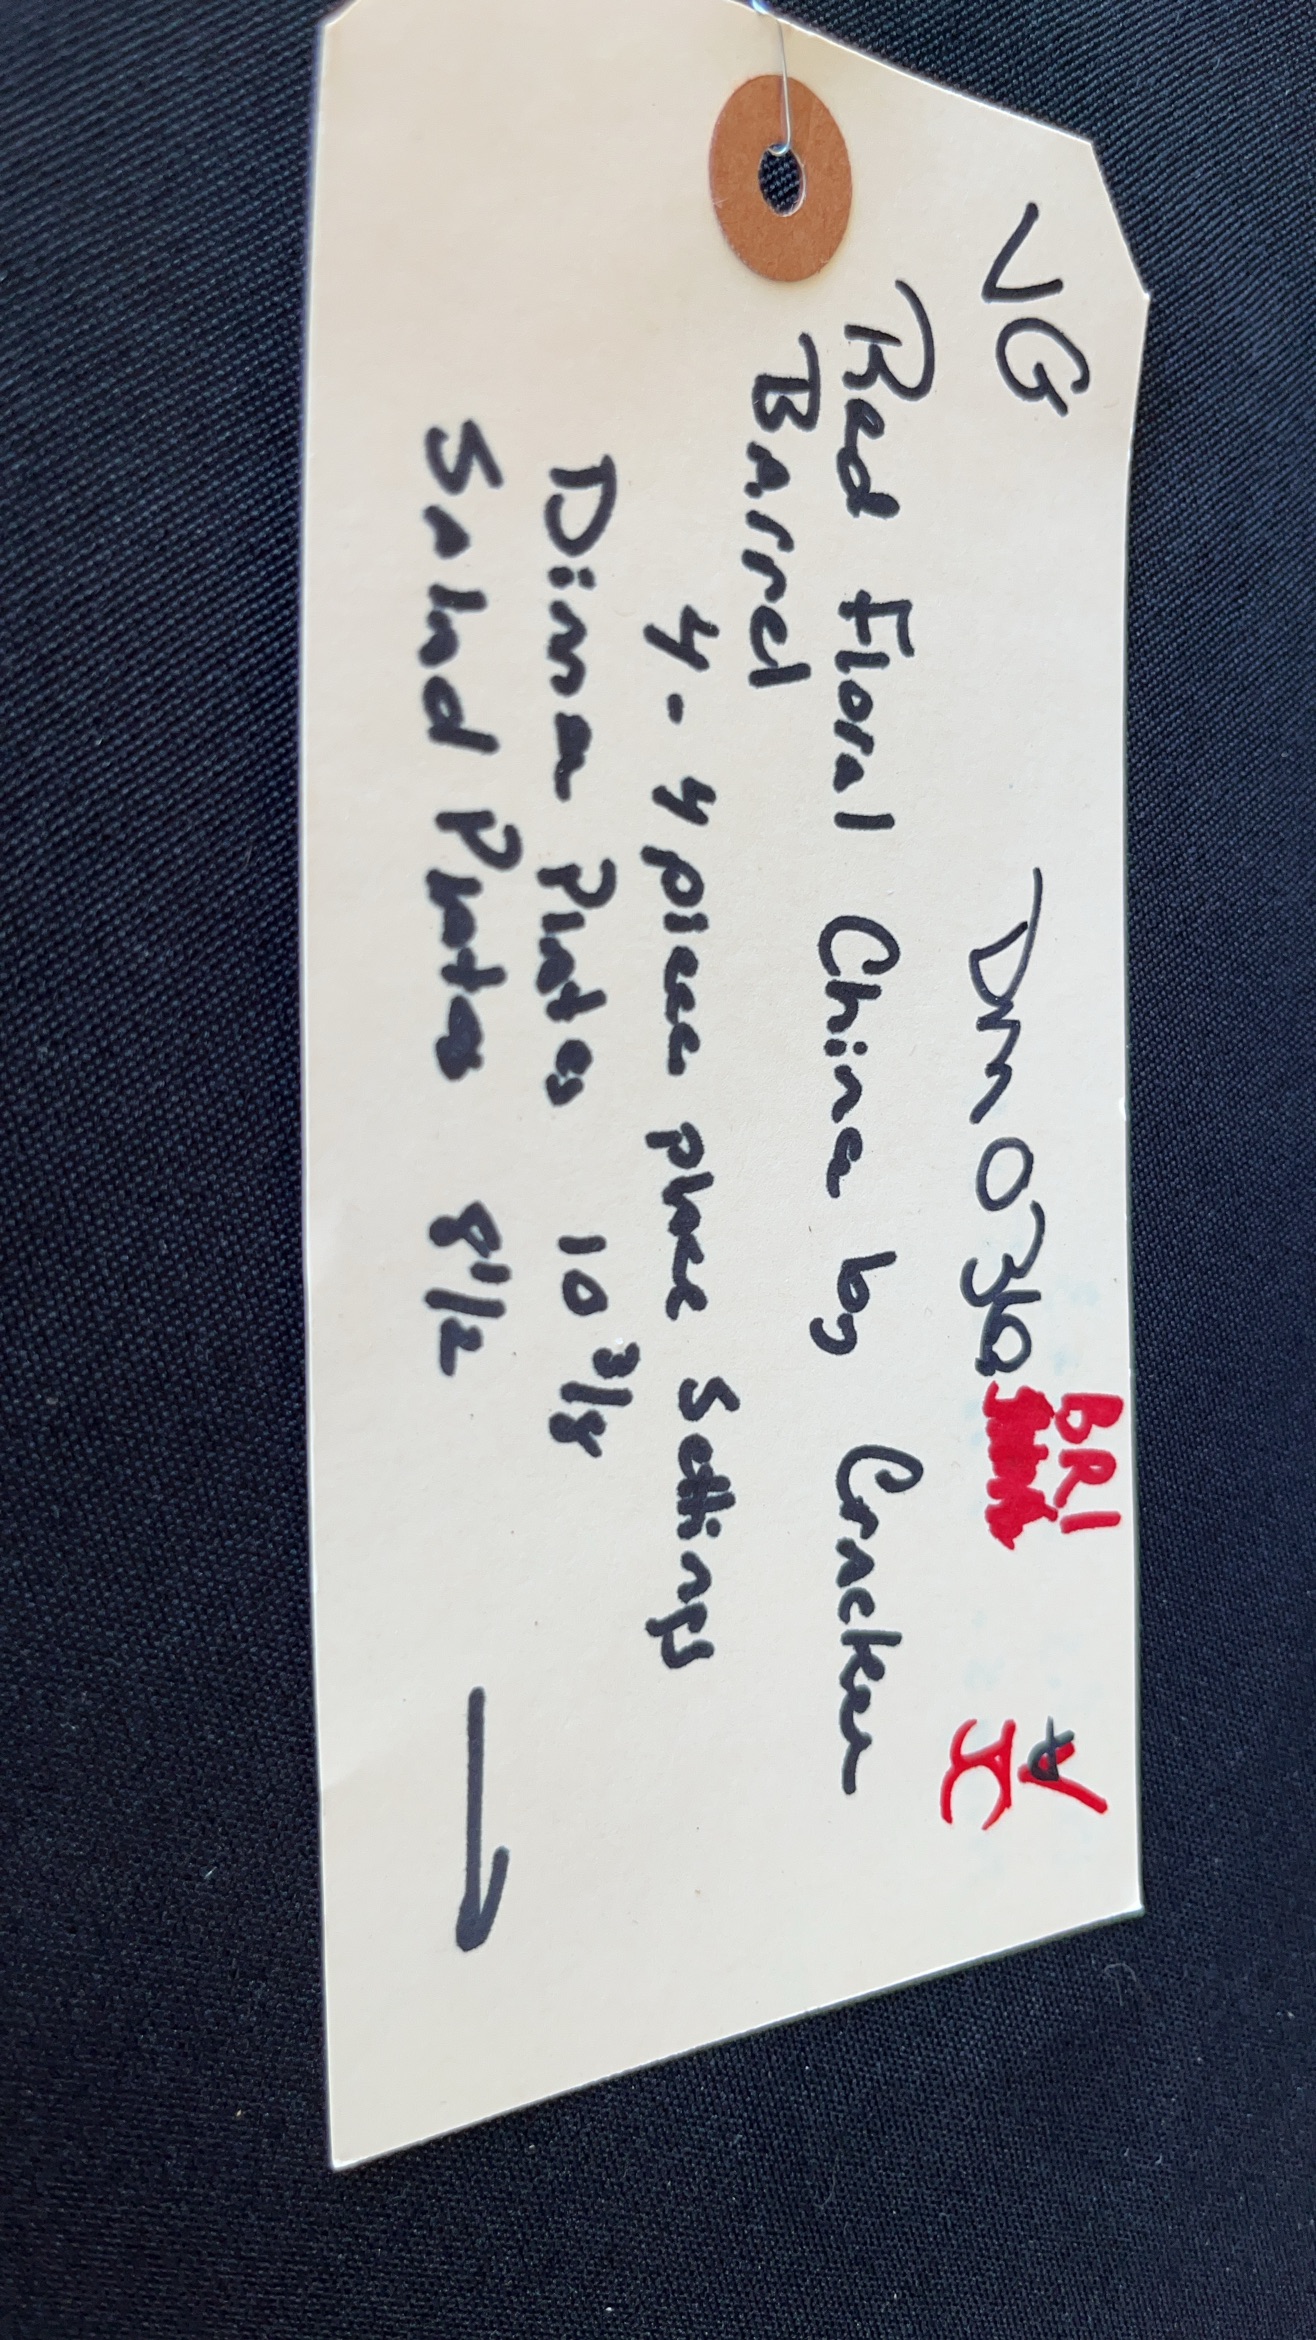 VG DM036 BR1
JC
Red Floral China by Cracker
Barrel
4 - 4 piece place Settings
Dinner Plates 10 3/8
Salad Plates 8 1/2